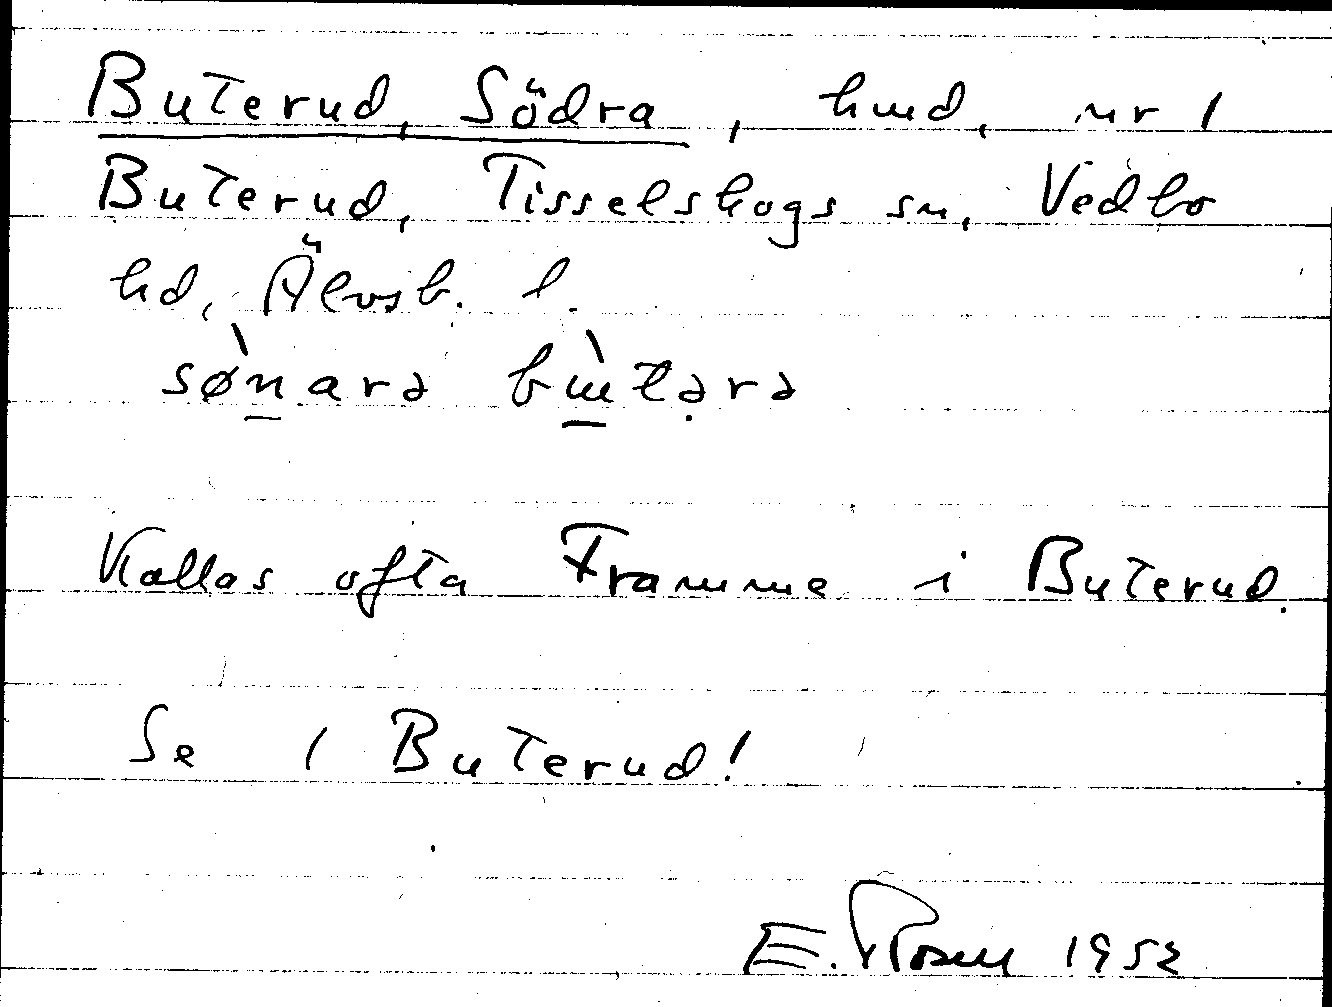 Buterud, Södra, hmd, nr 1
Buterud, Tisselskogs sn, Vedbo
hd, Älvsb. l.
sø̀narə bùtərə
Kallas ofta Framme i Buterud.
Se 1 Buterud!
E. Rosell 1952